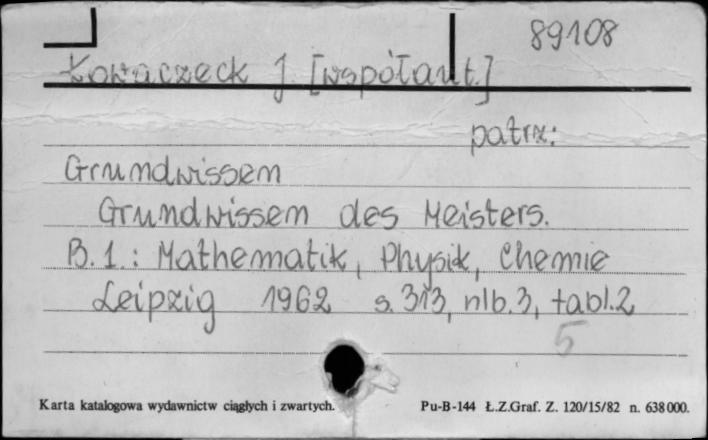 89108
Kowaczeck J. [współaut.]
patrz:
Grundwissen
Grundwissen des Meisters.
B. 1.: Mathematik, Physik, Chemie
Leipzig 1962 s. 313, nlb. 3, tabl. 2
5
Karta katalogowa wydawnictw ciągłych i zwartych. Pu-B-144 Ł.Z.Graf. Z. 120/15/82 n. 638000.